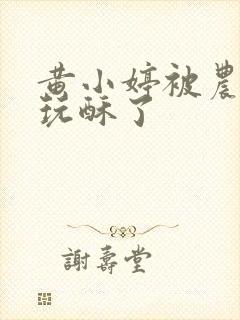 黄小婷被農
玩酥了
謝壽堂